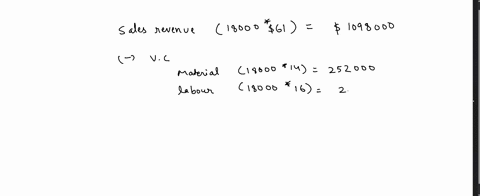 Sales revenue (18000 * $61) = $ 1098000
(-) V.C
Material (18000 * 14) = 252000
labour (18000 * 16) = 2